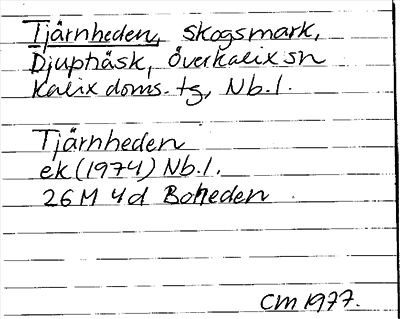 Tjärnheden, skogsmark,
Djupträsk, Överkalix sn
Kalix doms. tg, Nb.l.
Tjärnheden
ek (1974) Nb.l.
26M 4d Boheden
CM 1977.